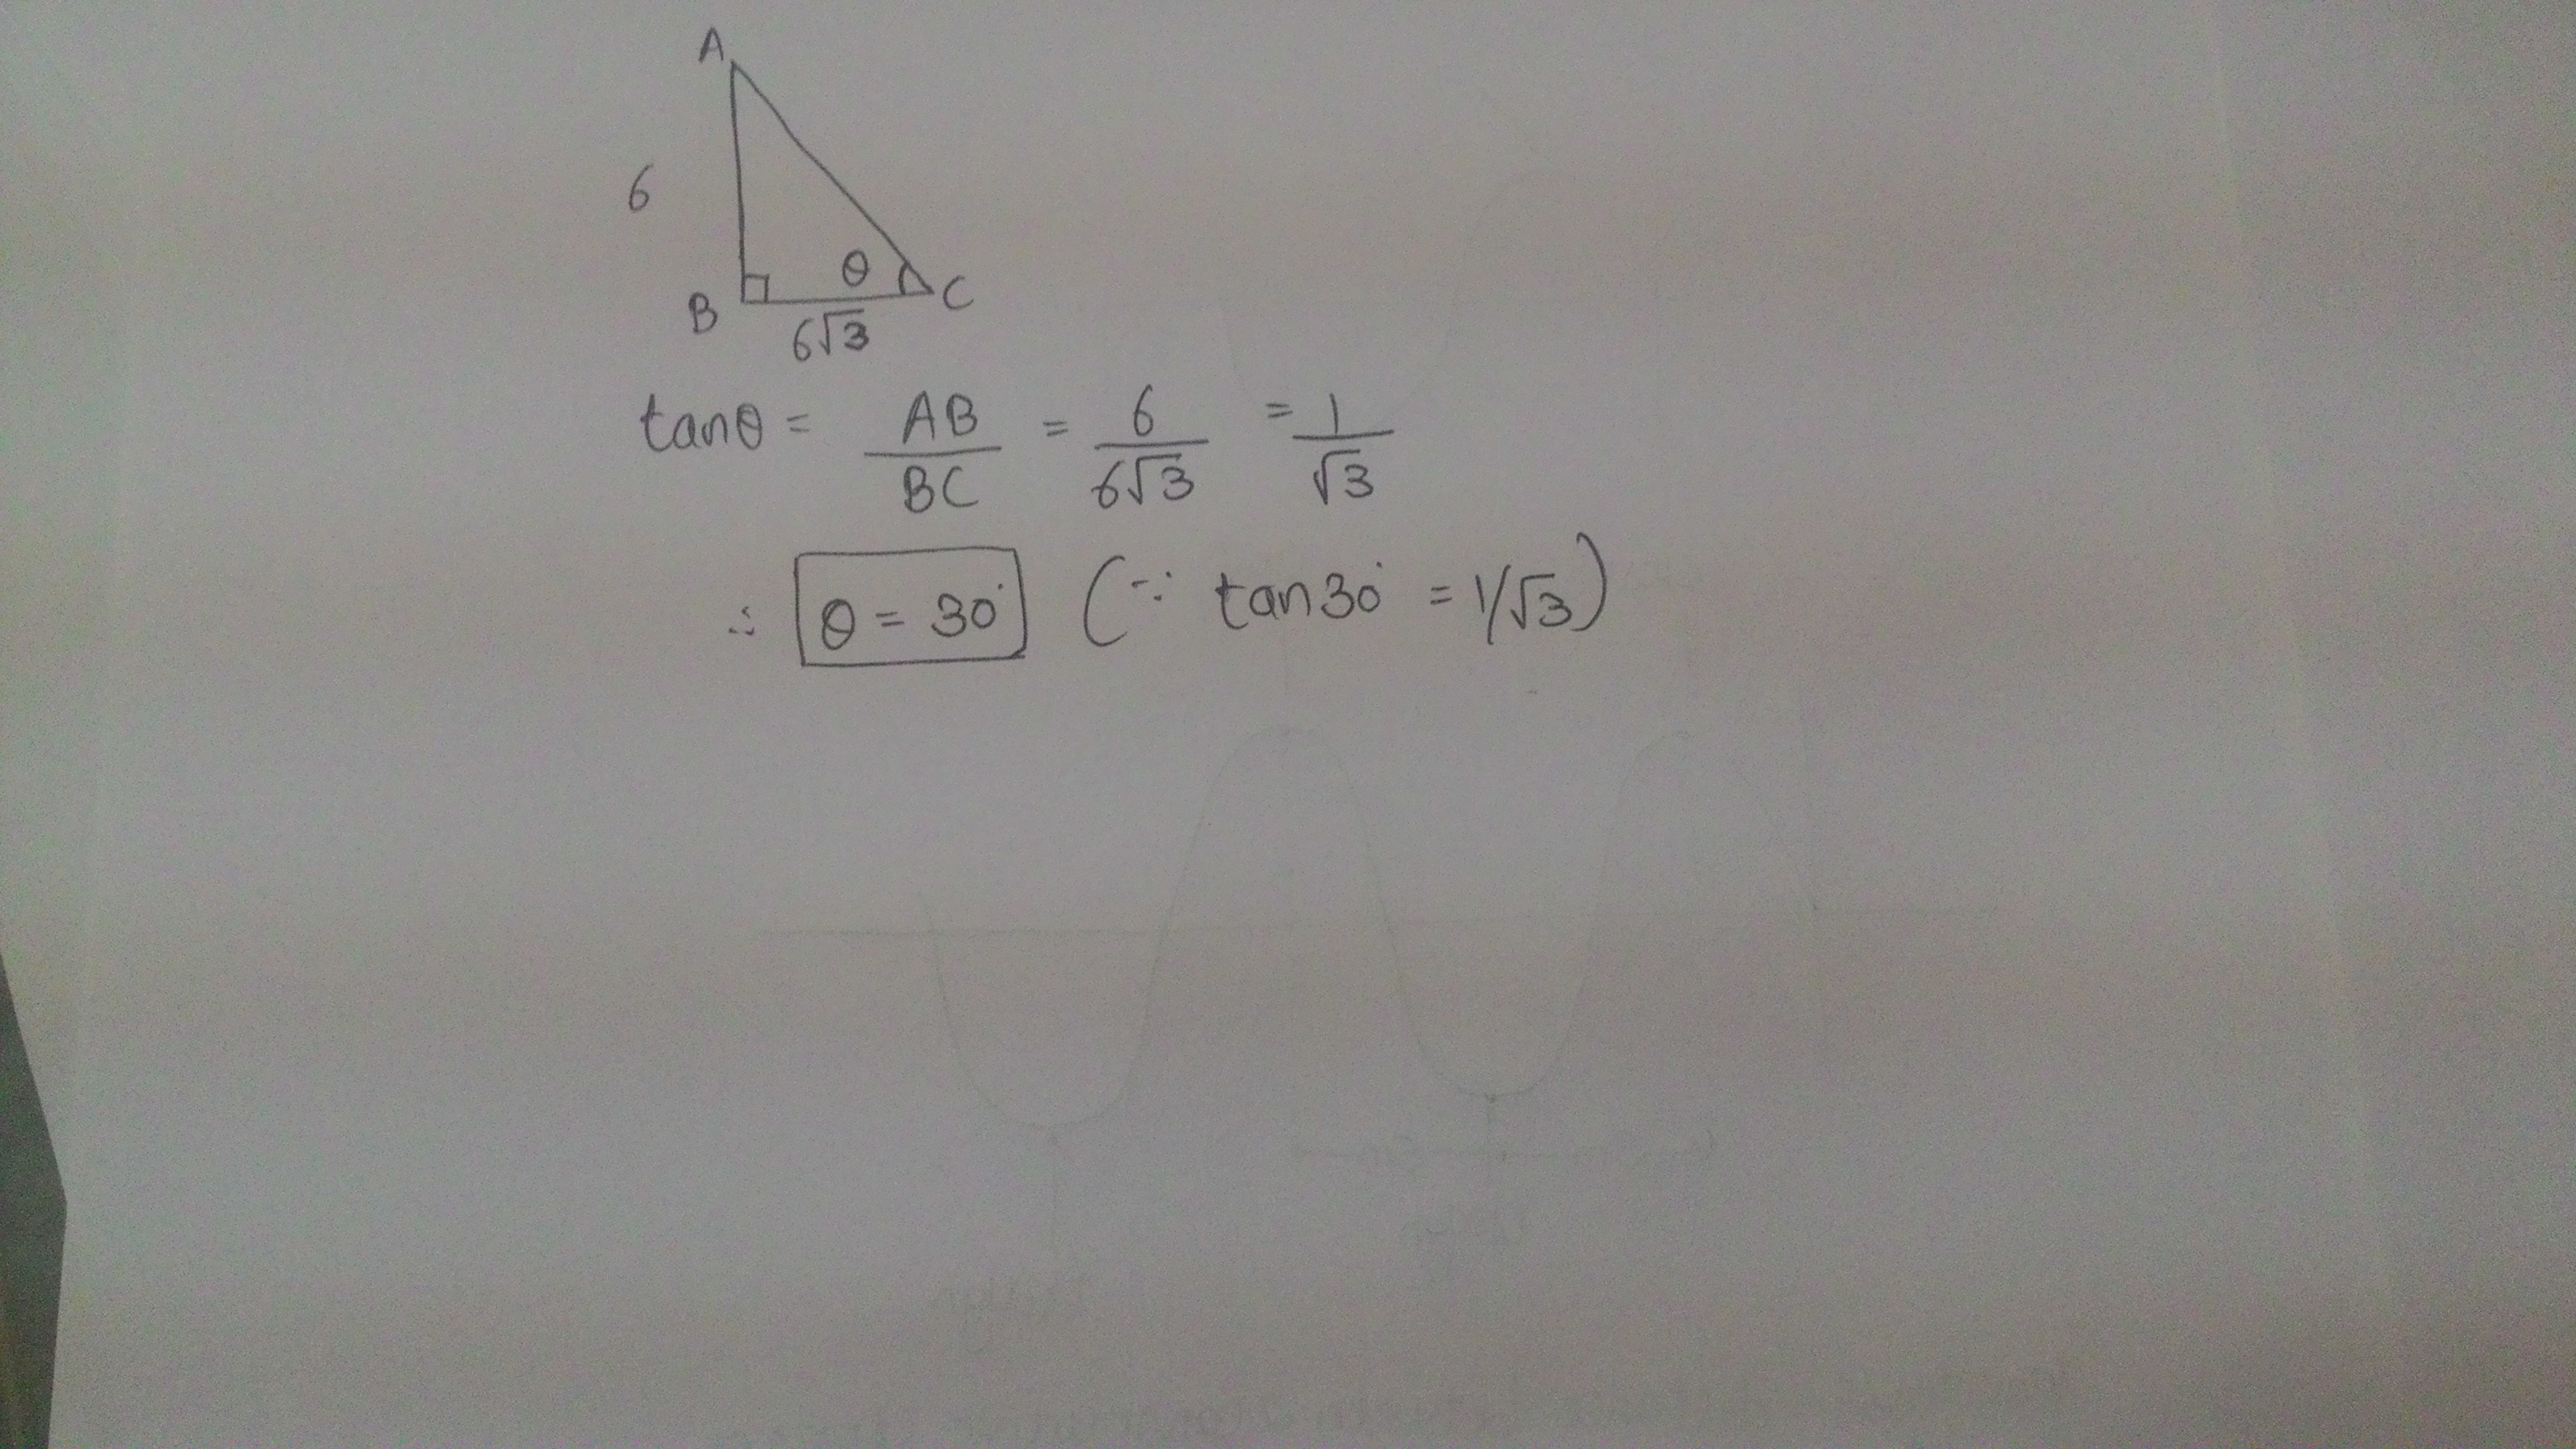 A
6
θ
B
C
6√3
tanθ = AB/BC = 6/6√3 = 1/√3
∴ θ = 30° (∵ tan30° = 1/√3)